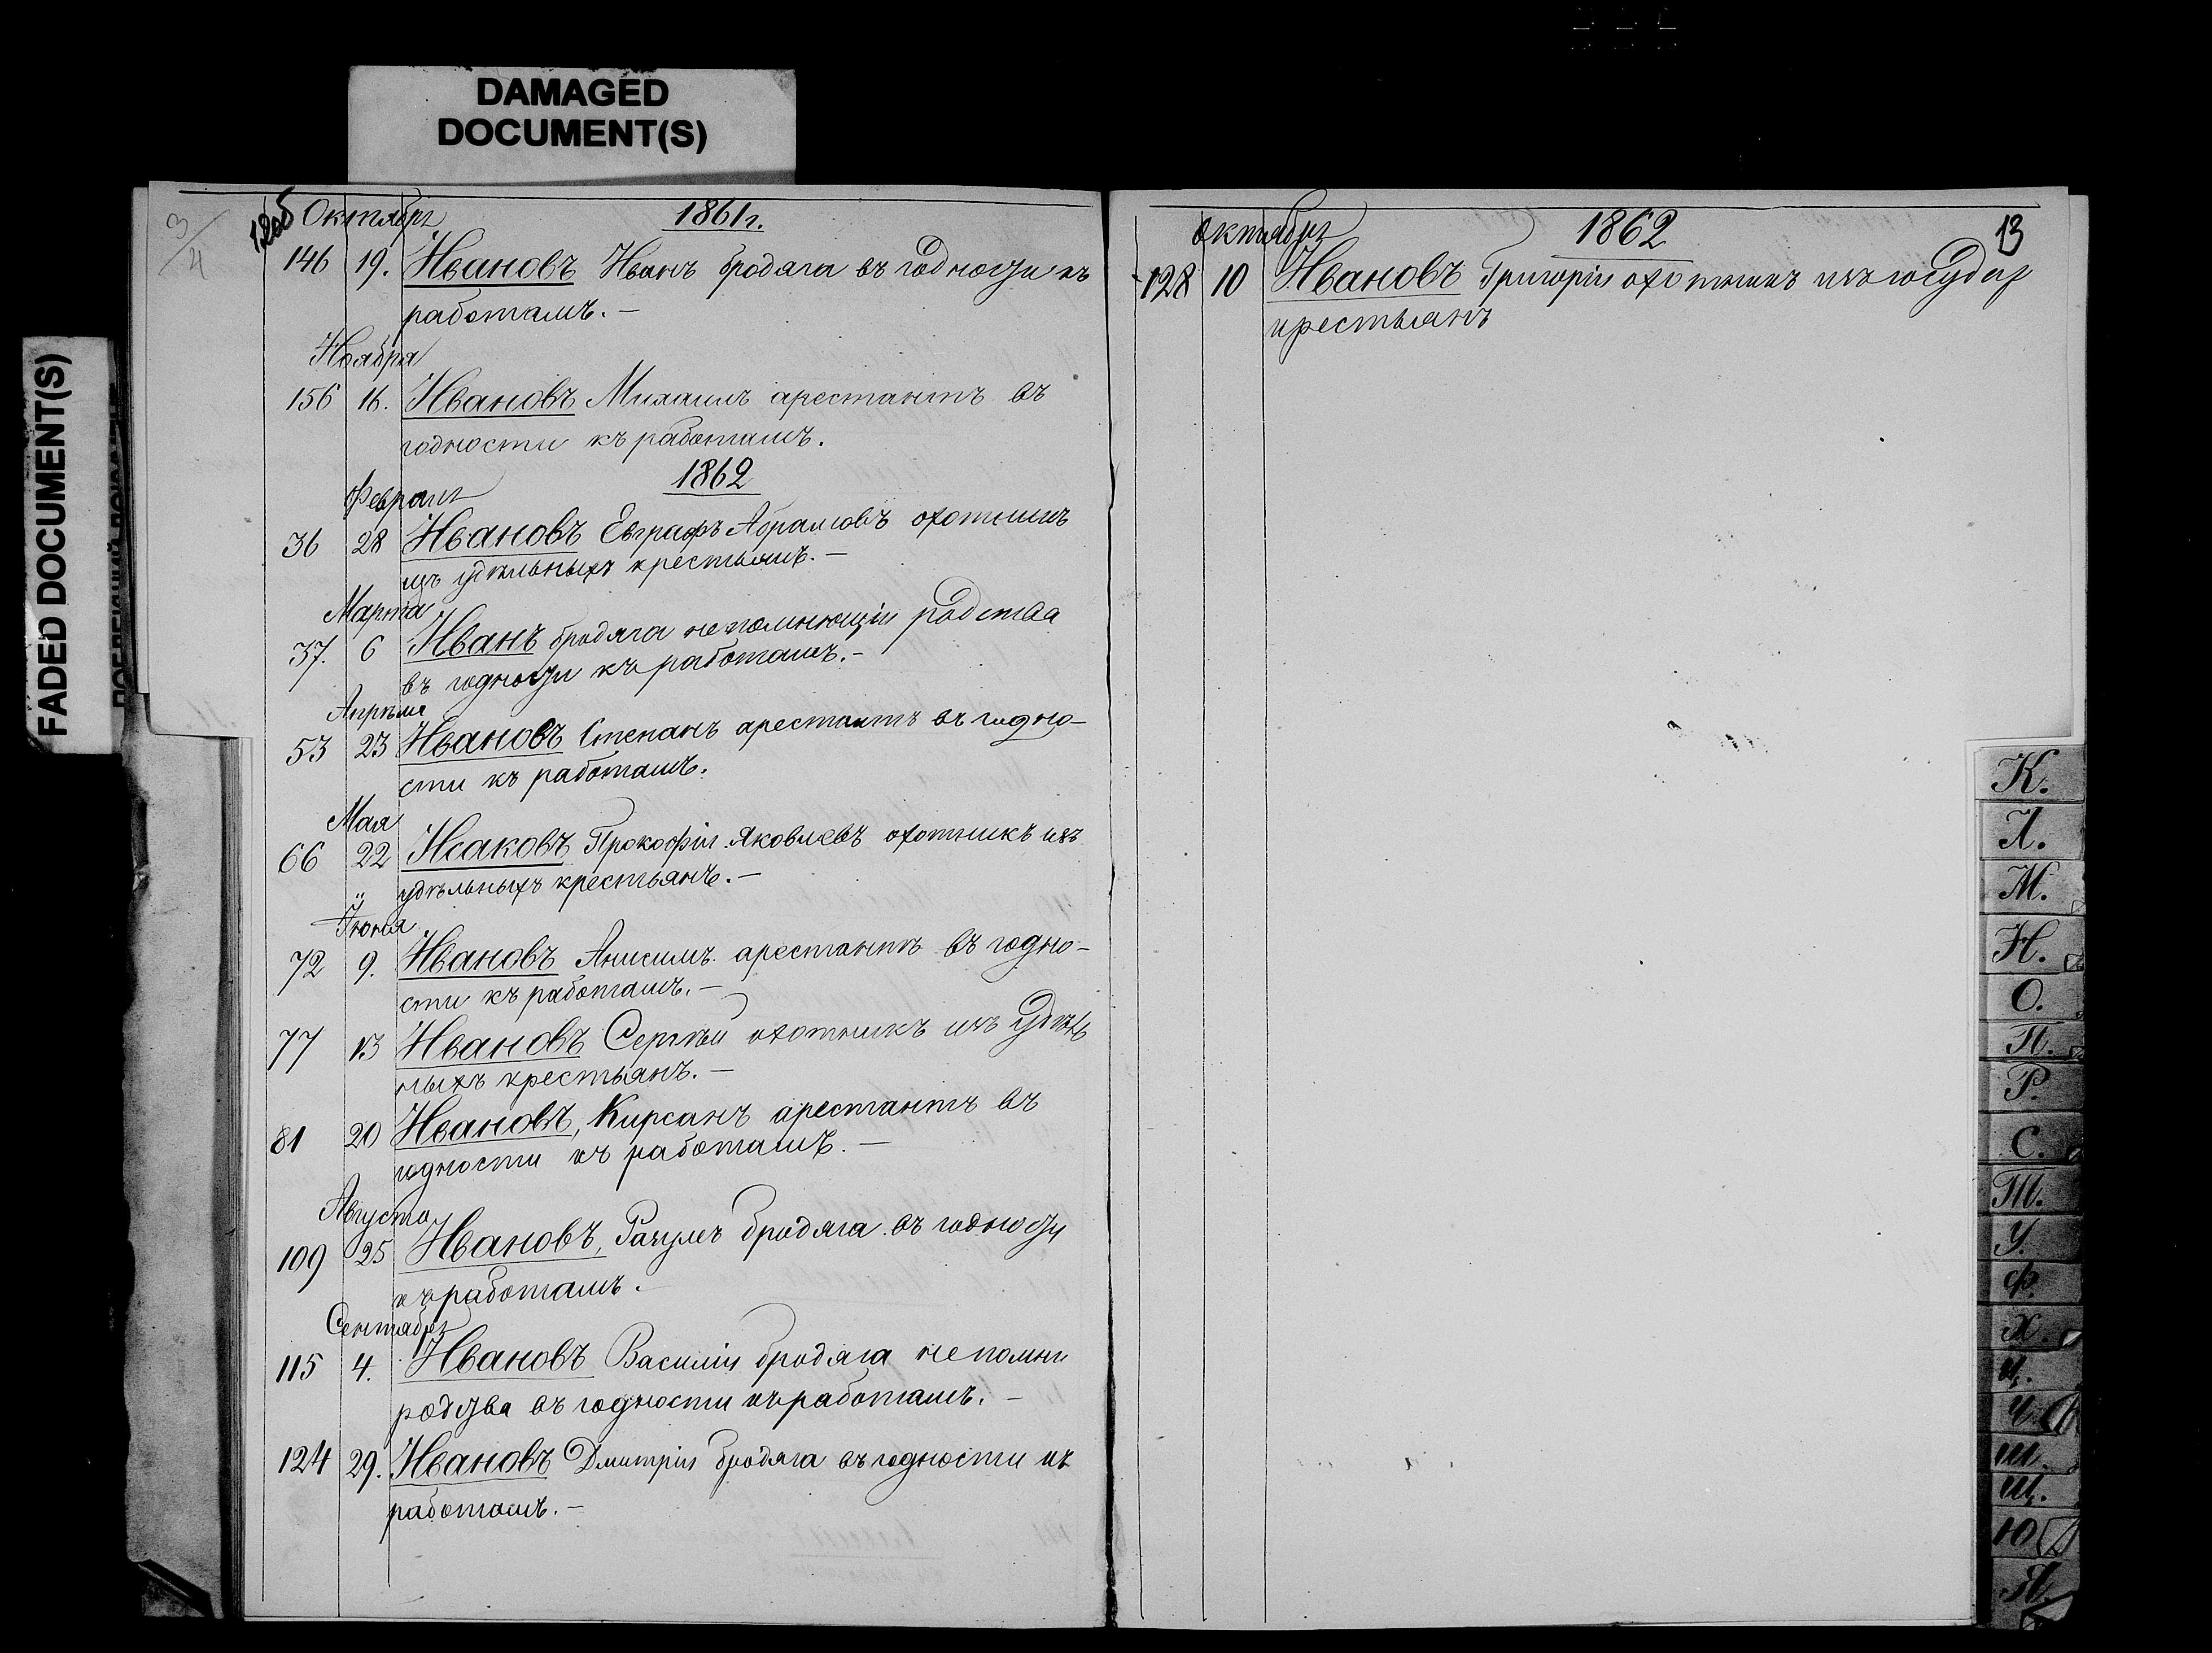 DAMAGED
DOCUMENT(S)
FADED DOCUMENT(S)
3/4
12об
Октября 1861 г.
146 19. Ивановъ Иванъ бродяга въ годности къ
работамъ. —
Ноября
156 16. Ивановъ Михаилъ арестантъ въ
годности къ работамъ.
1862
Февраля
36 28 Ивановъ Евграфъ Абрамовъ охотникъ
изъ удѣльныхъ крестьянъ. —
Марта
37. 6 Иванъ бродяга непомнющій родства
въ годности къ работамъ. —
Апрѣля
53 23 Ивановъ Степанъ арестантъ въ годно-
сти къ работамъ.
Мая
66 22 Исаковъ Прокофій Яковлевъ охотникъ изъ
удѣльныхъ крестьянъ. —
Іюня
72 9. Ивановъ Анисимъ арестантъ въ годно-
сти къ работамъ. —
77 13 Ивановъ Сергѣй охотникъ изъ удѣль
ныхъ крестьянъ. —
81 20 Ивановъ, Кирсанъ арестантъ въ
годности къ работамъ. —
Августа
109 25 Ивановъ, бродяга въ годности
къ работамъ.
Сентября
115 4. Ивановъ Василій бродяга непомни
родства въ годности къ работамъ. —
124 29. Ивановъ Дмитрій бродяга въ годности къ
работамъ. —
Октября 1862 13
128 10 Ивановъ Григорій охотникъ изъ государ
крестьянъ
К.
Л.
М.
Н.
О.
П.
Р.
С.
Т.
У.
Ф.
Х.
Ц.
Ч.
Ш.
Щ.
Ю
Я.